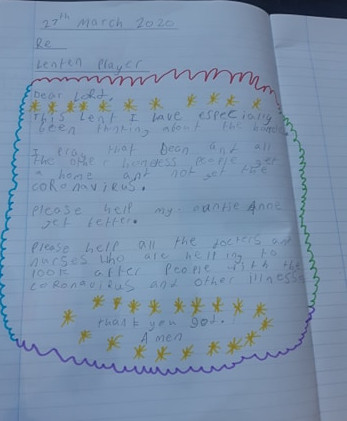 27th March 2020
Re
Lenten Prayer
Dear Lord,
This Lent I have especially
been thinking about the homeless
I pray that Dean and all
the other homeless people get
a home and not get the
coronavirus.
Please help my auntie Anne
get better.
Please help all the doctors and
nurses who are helping to
look after people with the
coronavirus and other illness
Thank you God.
Amen